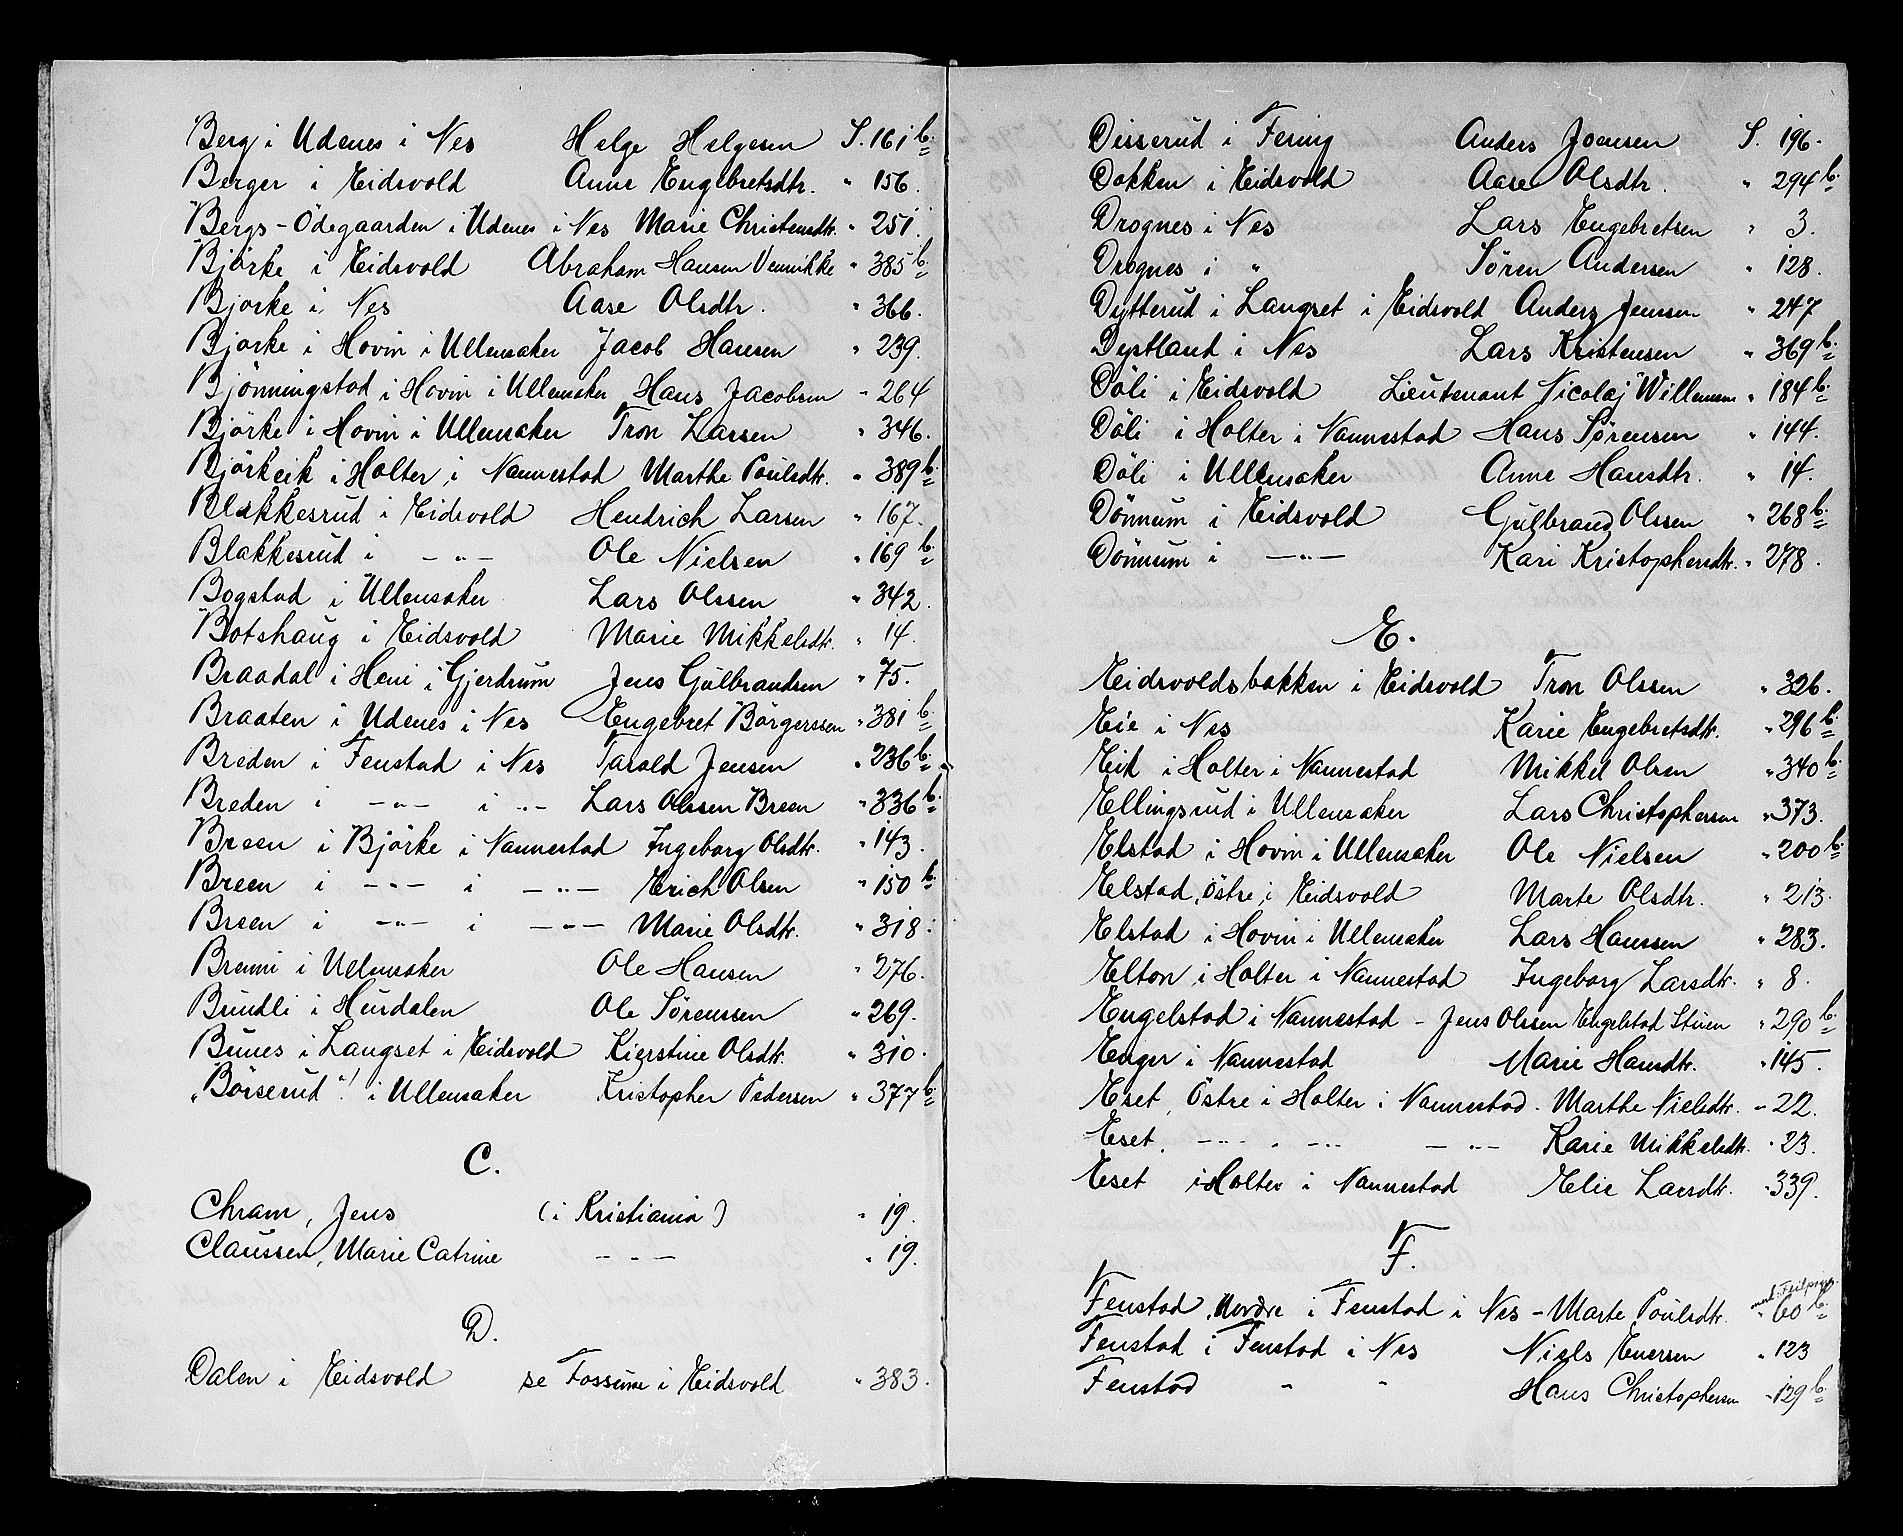 Berg i Udenes i Nes Helge Helgesen S. 161 b.
Berger i Eidsvold Anne Engebretsdtr. " 156.
Bergs-Ödegaarden i Udenes i Nes Marie Christensdtr. " 251.
Björke i Eidsvold Abraham Hansen Vennikke " 385 b.
Bjorke i Nes Aase Olsdtr. " 366.
Bjorke i Hovin i Ullensaker Jacob Hansen " 239.
Bjönningstad i Hovin i Ullensaker Hans Jacobsen " 264
Björke i Hovin i Ullensaker Tron Larsen " 346.
Björkeik i Holter i Nannestad Marthe Poulsdtr. " 389 b.
Blakkesrud i Eidsvold Hendrich Larsen " 167.
Blakkesrud i - " - Ole Nielsen " 169 b.
Bogstad i Ullensaker Lars Olssen " 342.
Botshaug i Eidsvold Marie Mikkelsdtr. " 14.
Braadal i Heni i Gjerdrum Jens Gulbrandsen " 75.
Braaten i Udenes i Nes Engebret Börgerssen " 381 b.
Breden i Fenstad i Nes Tarald Jensen " 236 b.
Breden i - " - i " - Lars Olssen Breen " 336 b.
Breen i Björke i Nannestad Ingeborg Olsdtr. " 143.
Breen i - " - i - " - Erich Olsen " 150 b.
Breen i - " - i - " - Marie Olsdtr. " 318.
Brenni i Ullensaker Ole Hansen " 276.
Bundli i Hurdalen Ole Sørenssen " 269.
Bunes i Langset i Eidsvold Kierstine Olsdtr. " 310.
"Börserud"! i Ullensaker Kristopher Pedersen " 377 b.
C.
Chram, Jens (i Kristiania) " 19.
Claussen, Marie Catrine - - - " 19.
D.
Dalen i Eidsvold se Fossum i Eidsvold " 383.
Disserud i Fering Anders Joensen S. 196.
Dokken i Eidsvold Aase Olsdtr. " 294 b.
Drognes i Nes Lars Engebretsen " 3.
Drognes i " Sören Andersen " 128.
Dytterud i Langset i Eidsvold Anders Jenssen " 247
Dystland i Nes Lars Kristensen " 369 b.
Döli i Eidsvold Lieutenant Nicolaj Willemsen " 184 b.
Döli i Holter i Nannestad Hans Sørensen " 144.
Döli i Ullensaker Anne Hansdtr. " 14.
Dönnum i Eidsvold Gulbrand Olssen " 268 b.
Dönnum i - " - Kari Kristophersdtr. " 278.
E.
Eidsvoldsbakken i Eidsvold Tron Olssen " 326.
Eie i Nes Karie Engebretsdtr. " 296 b.
Eik i Holter i Nannestad Mikkel Olsen " 340 b.
Ellingsrud i Ullensaker Lars Christophersen " 373.
Elstad i Hovin i Ullensaker Ole Nielsen " 200 b.
Elstad, östre, i Eidsvold Marte Olsdtr. " 213.
Elstad i Hovin i Ullensaker Lars Hanssen " 283.
Elton i Holter i Nannestad Ingeborg Larsdtr. " 8.
Engelstad i Nannestad - Jens Olssen Engelstad Stuen " 290 b.
Enger i Nannestad Marie Hansdtr. " 145.
Eset, Östre i Holter i Nannestad. Marthe Nielsdtr. " 22.
Eset. - " - " - " - - " - Karie Mikkelsdtr. " 23.
Eset i Holter i Nannestad Elie Larsdtr. " 339.
F.
Fenstad, Nordre i Fenstad i Nes - Marte Poulsdtr. " 60 b.
Fenstad i Fenstad i Nes Niels Eversen " 123
Fenstad " " Hans Christophersen " 129 b.